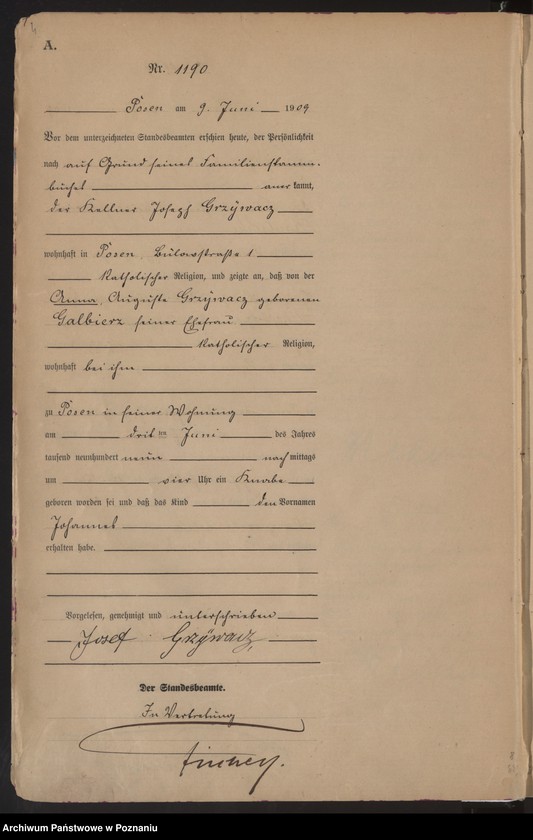 A.
Nr. 1190
Posen am 9. Juni 1909
Vor dem unterzeichneten Standesbeamten erschien heute, der Persönlichkeit
nach auf Grund seines Familienstamm-
buches anerkannt,
der Kellner Joseph Grzÿwacz
wohnhaft in Posen, Bülowstraße 1
katholischer Religion, und zeigte an, daß von der
Anna, Auguste Grzÿwacz geborenen
Galbierz seiner Ehefrau
katholischer Religion,
wohnhaft bei ihm
zu Posen in seiner Wohnung
am dritten Juni des Jahres
tausend neunhundert neun nachmittags
um vier Uhr ein Knabe
geboren worden sei und daß das Kind den Vornamen
Johannes
erhalten habe.
Vorgelesen, genehmigt und unterschrieben
Josef Grzÿwacz
Der Standesbeamte.
In Vertretung
Archiwum Państwowe w Poznaniu